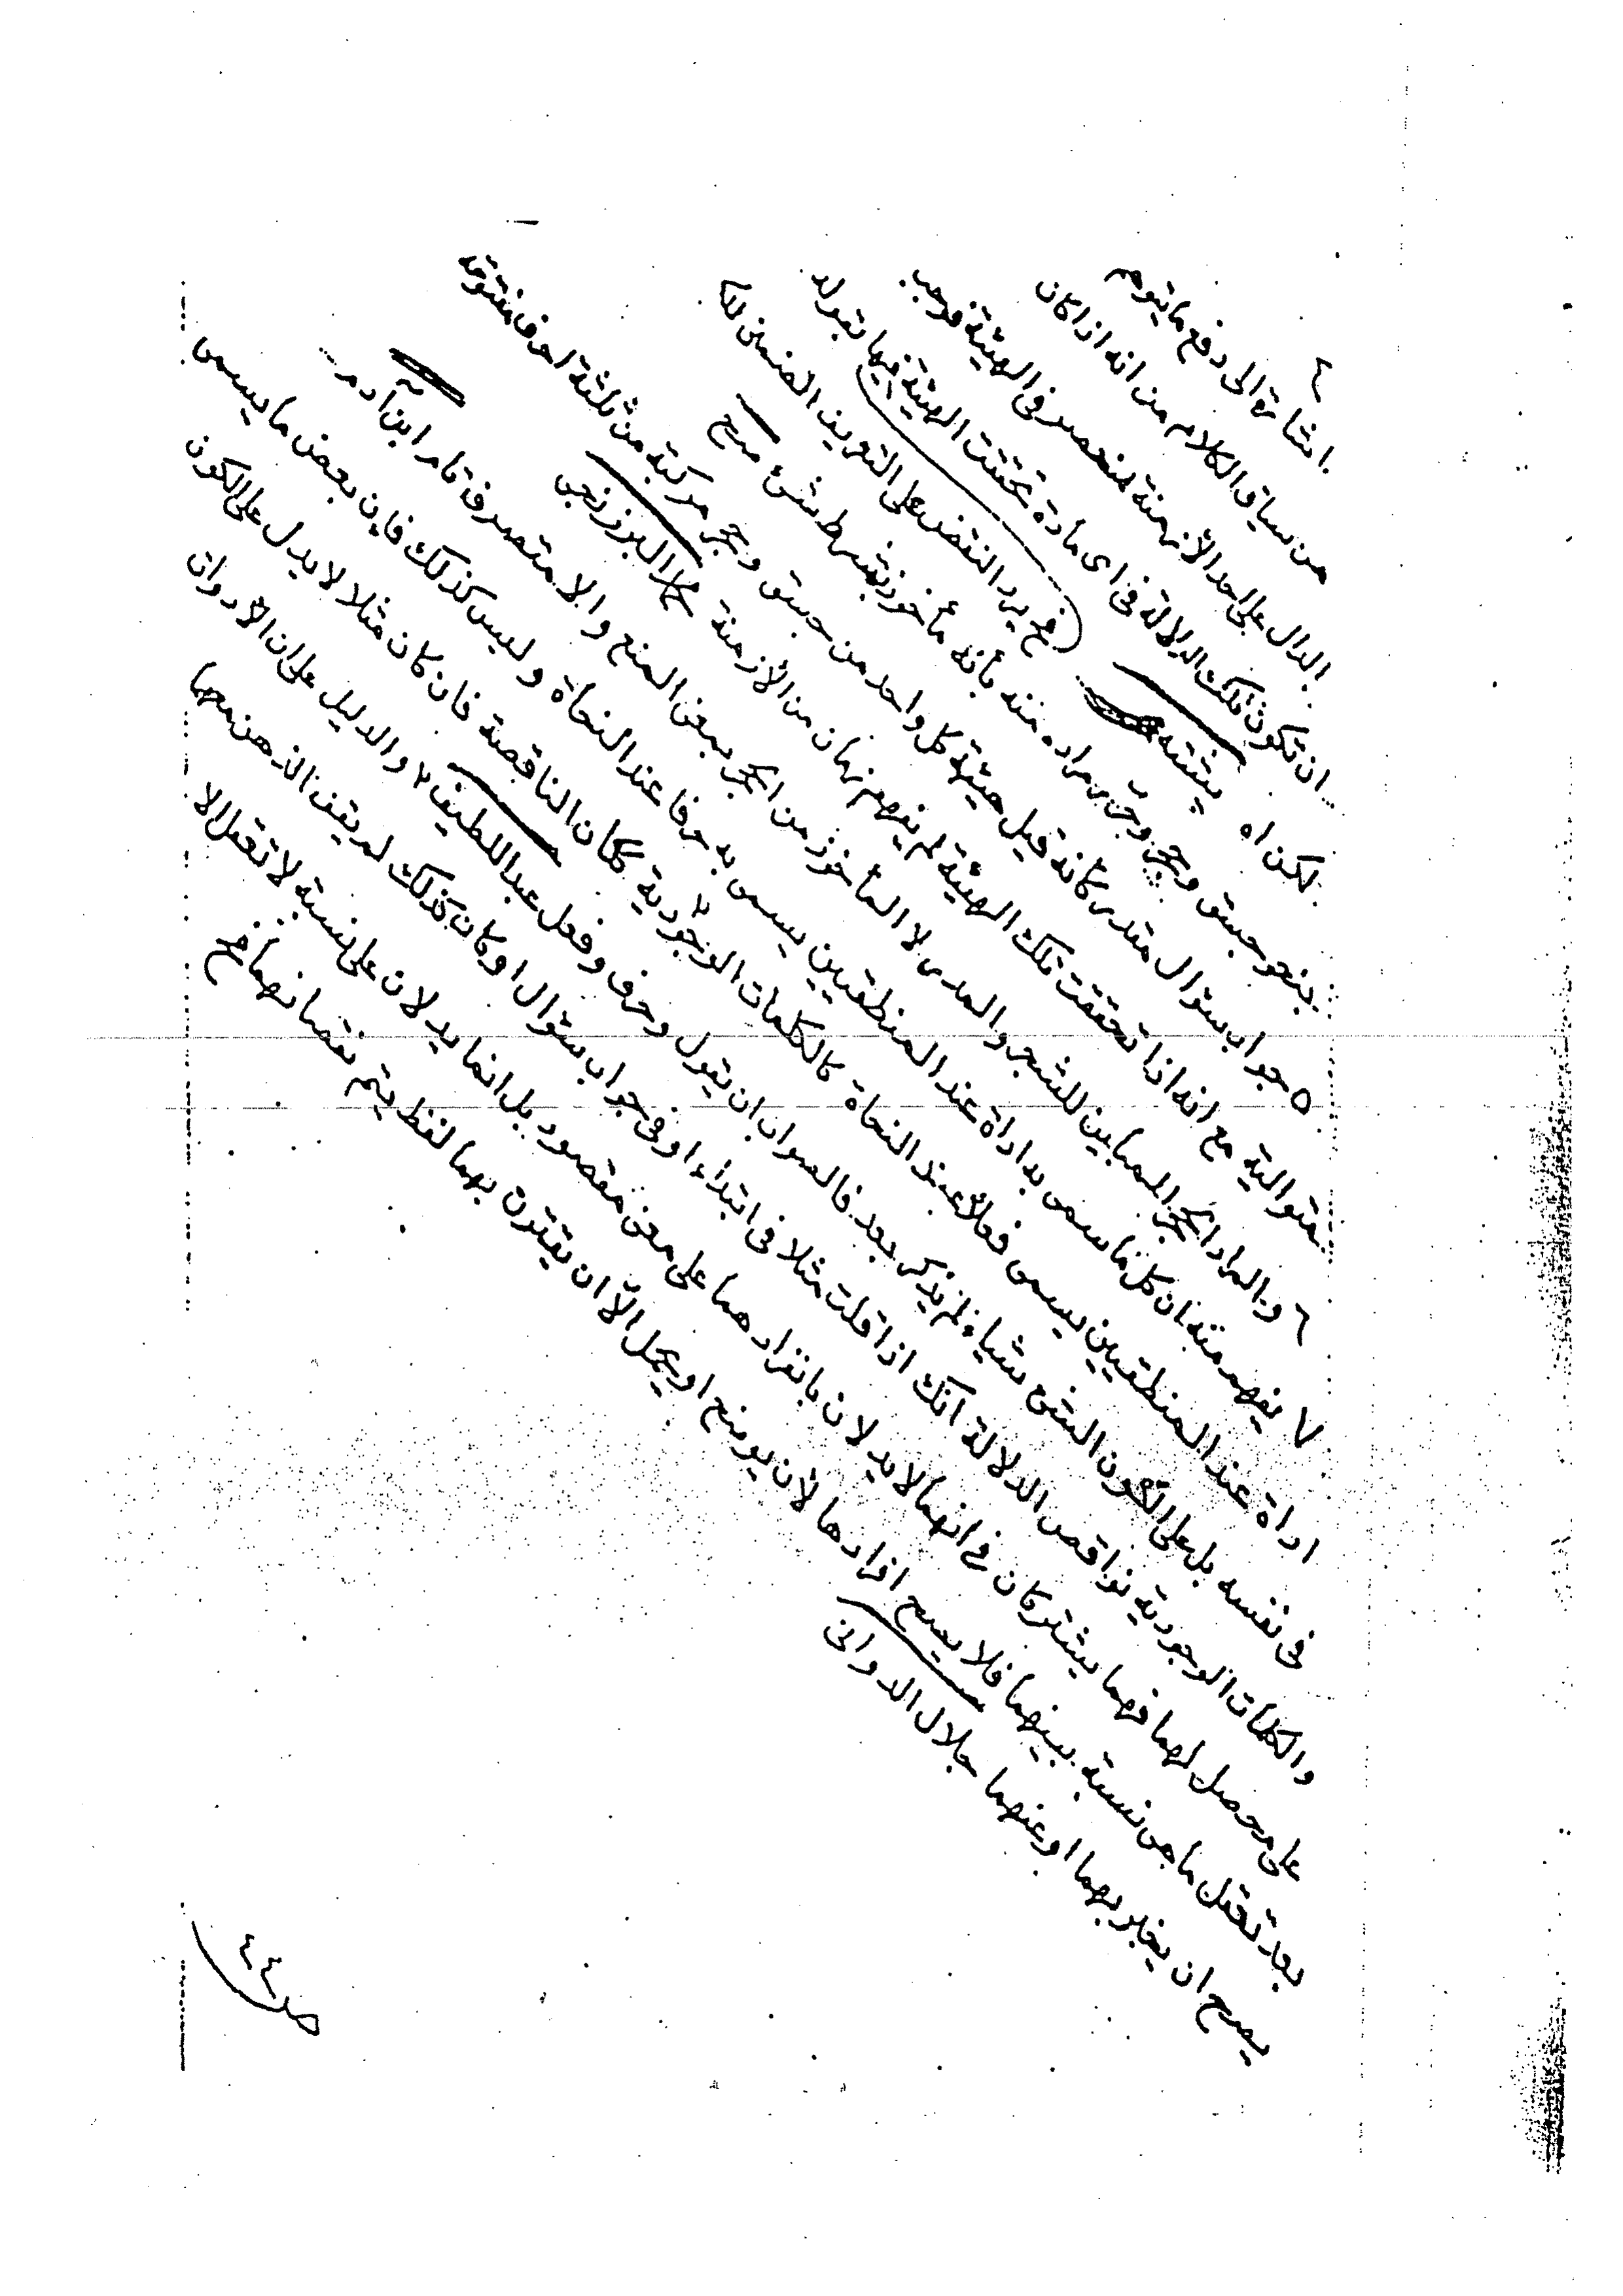 ٤ اشارة الى دفع ما يتوهم
من سياق الكلام من انه اذا كان
الدال على احد الأزمنة منحصر في الهيئة فوجب
ان تكون تلك الدلالة في اى مادة تحققت الهيئة فيها بقوله
لكن اه يثبته فح يرد النقض على التعريف
بنحو جسق وحجر مراده منه بأنه مأخوذ بشرط شئ
٥ جواب سؤال مقدر كأنه قيل هيئة كل واحد من جسق وحجر مركبة من ثلثة احرف مفتوحة
متوالية مع انه اذا تحققت تلك الهيئة لم يفهم زمان من الأزمنة البرزنجى
٦ والمراد الحجر المباين للشجر والمدر لا المأخوذ من الحجر بمعنى المنع والا متصرف تامر ابن آدم
٧ يفهم منه ان كل ما سمى بداداة عند المنطقيين يسمى به حرفا عند النحاة وليس كذلك فإن بعض ما يسمى
اداة عند المنطقيين يسمى فعلا عند النحاة كالكلمات الوجودية ككان الناقصة فان كان مثلا لا يدل على الكون
فى نفسه بل على الكون الشئ شياء لم يذكر بعد فالصواب ان يقول وحرف وفعل عبد اللطيف ٢ والدليل على ان الأدوات
والكلمات الوجودية نواقص الدلالة انك اذا قلت مثلا فى ابتداء او فى جواب سؤال او كان كذلك لم يقف الذهن معهما
على محصل لهما فهما يشتركان فى انهما لا يدلان بانفرادهما على معنى مقصود بل انما يدلان على نسبة لا تعقل الا
بعد تعقل ما هى نسبة بينهما فلا يصح افرادها لأن يوضع او يحمل الا ان يقترن بهما لفظ يتم نقصانهما فح
يصح ان يخبر بهما او عنهما جلال الدوانى
صـ ٤٤